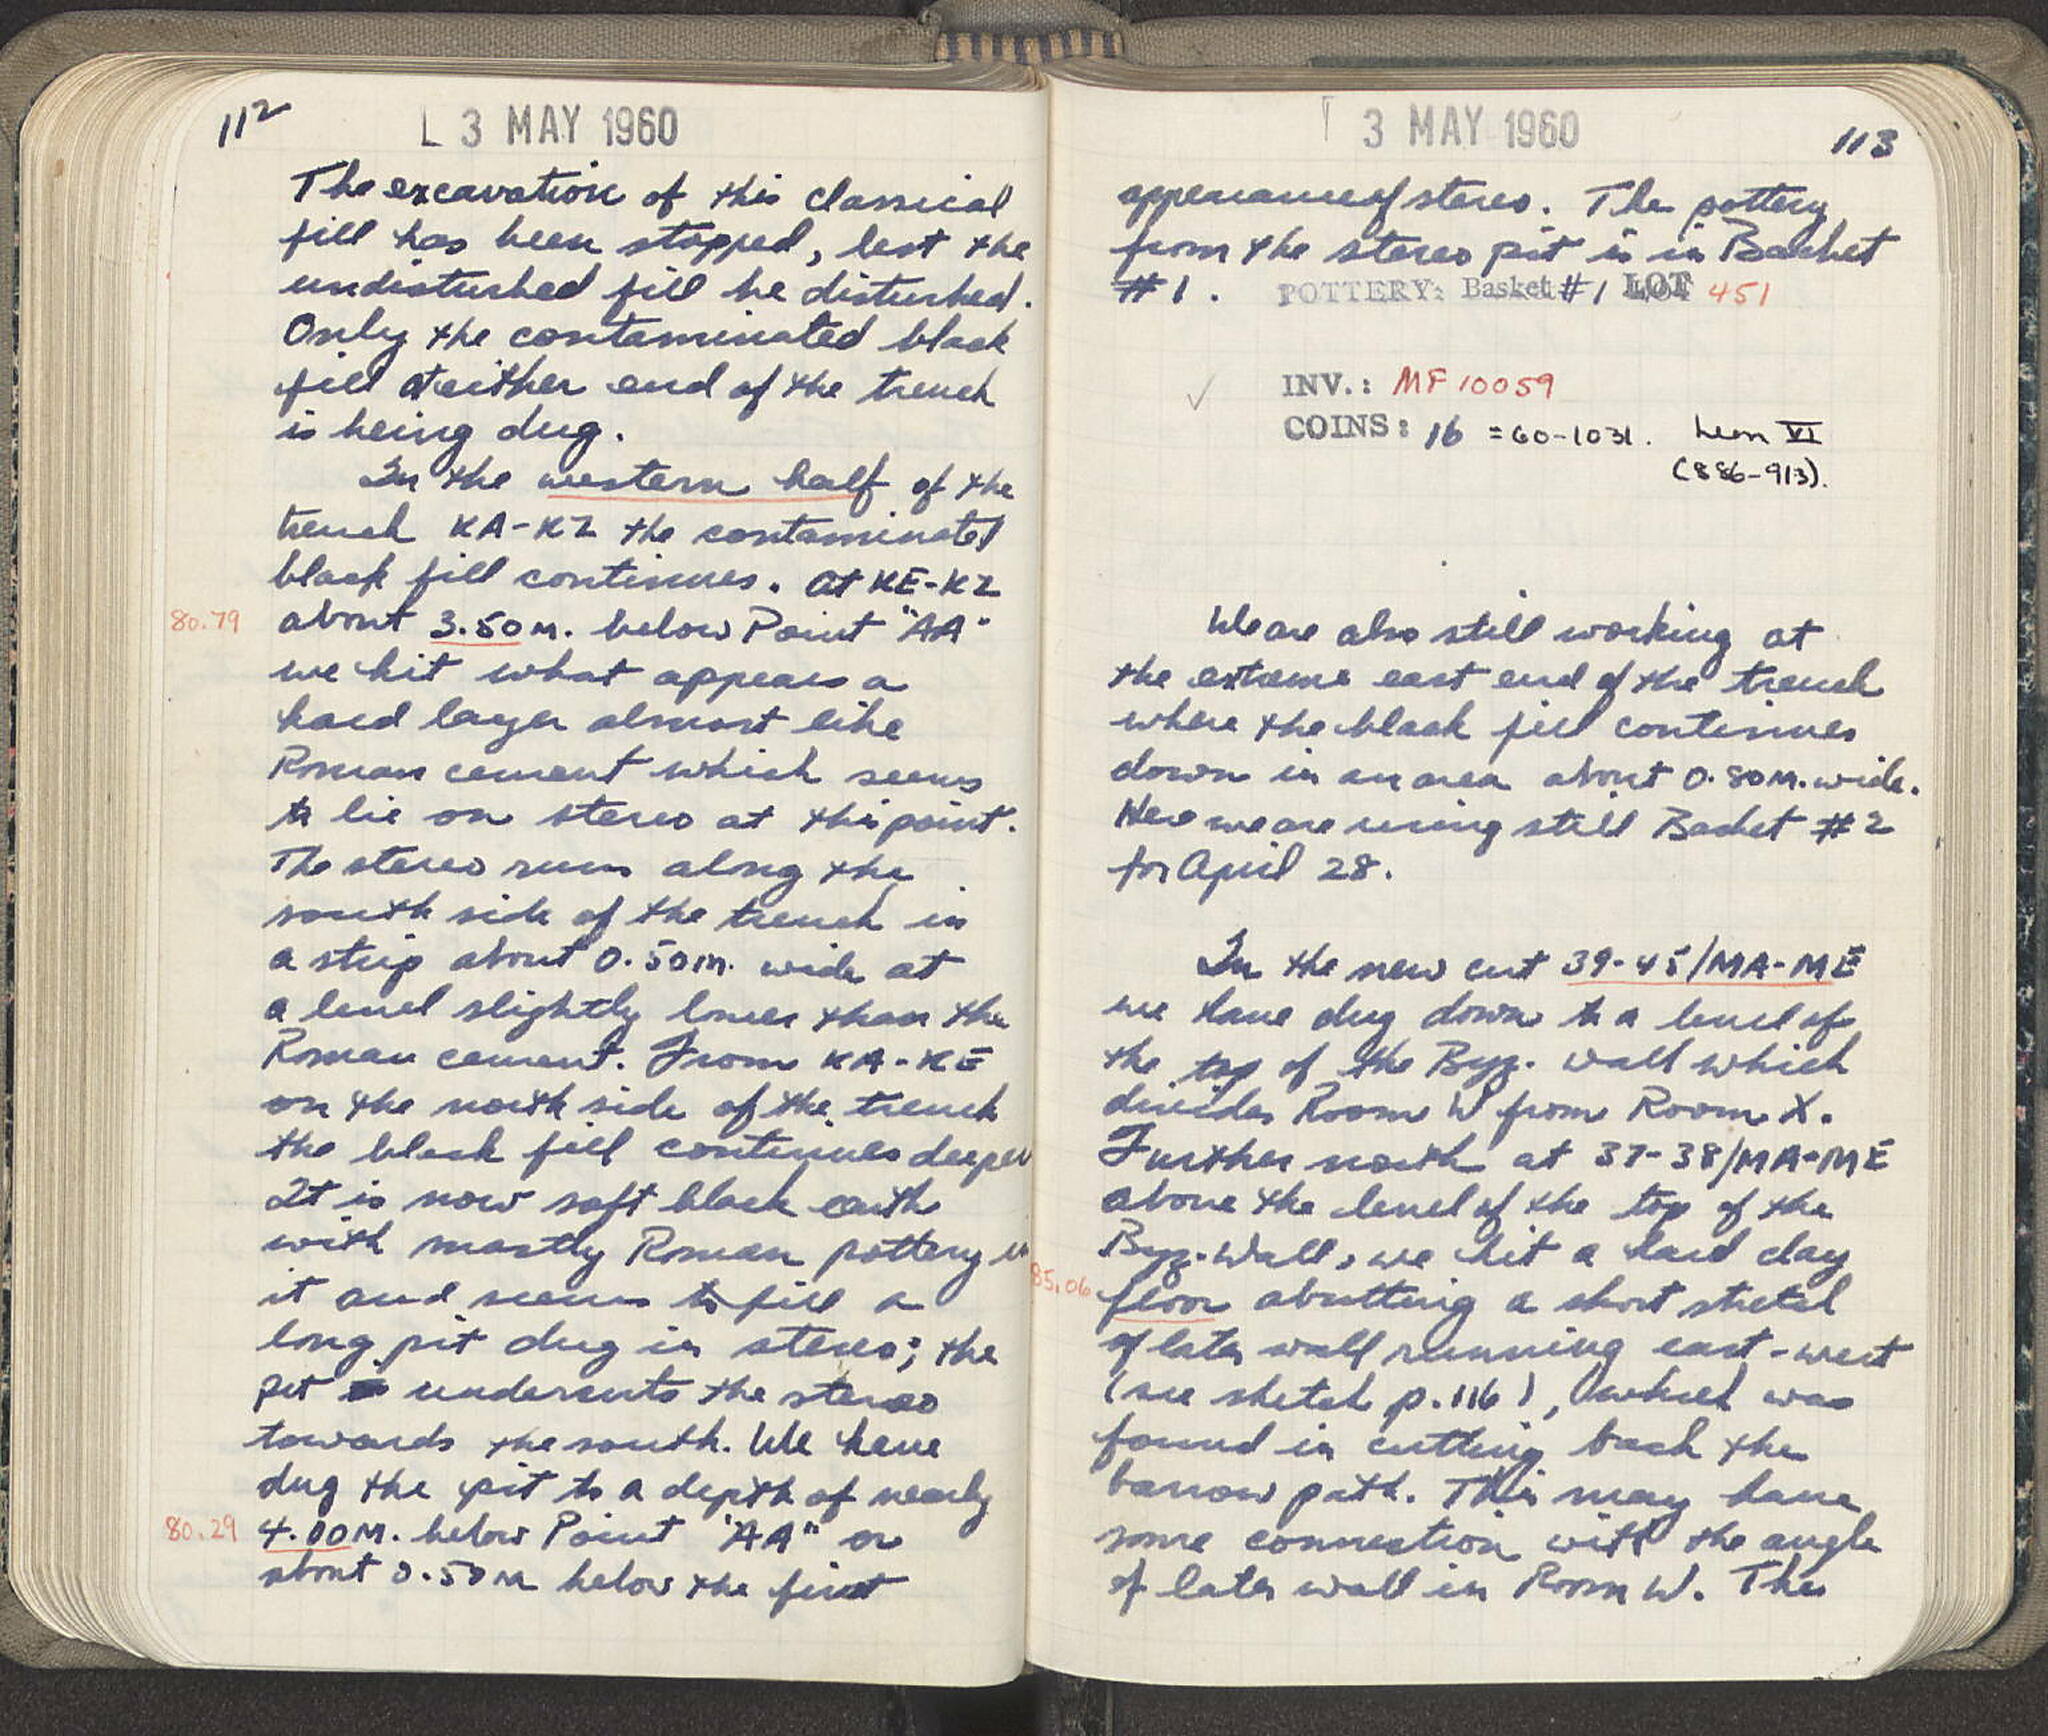 112
3 MAY 1960
The excavation of this classical
fill has been stopped, lest the
undisturbed fill be disturbed.
Only the contaminated black
fill at either end of the trench
is being dug.
In the western half of the
trench KA-KZ the contaminated
black fill continues. At KE-KZ
80.79 about 3.50 M. below Point "AA"
we hit what appears a
hard layer almost like
Roman cement which seems
to lie on stereo at this point.
The stereo runs along the
south side of the trench in
a strip about 0.50 m. wide at
a level slightly lower than the
Roman cement. From KA-KE
on the north side of the trench
the black fill continues deeper
It is now soft black earth
with mostly Roman pottery in
it and seems to fill a
long pit dug in stereo; the
pit undercuts the stereo
towards the south. We have
dug the pit to a depth of nearly
80.29 4.00 M. below Point "AA" or
about 0.50 m below the first
3 MAY 1960
113
appearance of stereo. The pottery
from the stereo pit is in Basket
#1. POTTERY: Basket #1 LOT 451
✓ INV.: MF 10059
COINS: 16 = 60-1031. Leon VI
(886-913).
We are also still working at
the extreme east end of the trench
where the black fill continues
down in an area about 0.80 M. wide.
Here we are using still Basket #2
for April 28.
In the new cut 39-45/MA-ME
we have dug down to a level of
the top of the Byz. wall which
divides Room W from Room X.
Further north at 37-38/MA-ME
above the level of the top of the
Byz. Wall, we hit a hard clay
85.06 floor abutting a short stretch
of later wall running east-west
(see sketch p.116), which was
found in cutting back the
barrow path. This may have
some connection with the angle
of later wall in Room W. The